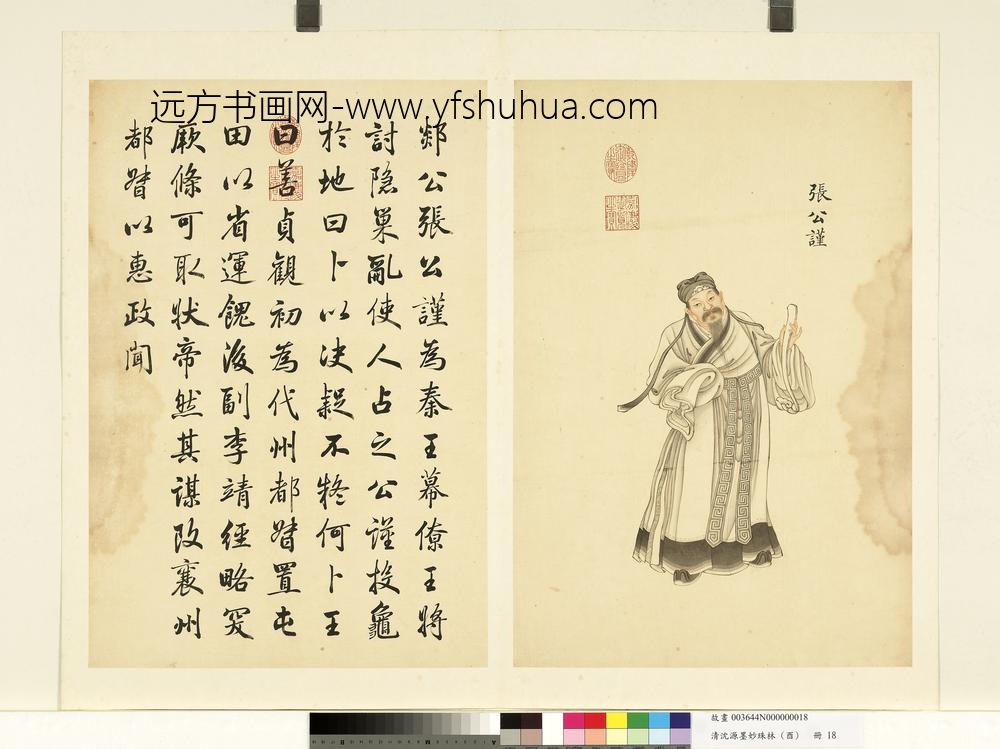 远方书画网-www.yfshuhua.com
張公謹
郯公張公謹為秦王幕僚王將
討隱巢亂使人占之公謹投龜
於地曰卜以決疑不疑何卜王
曰善貞觀初為代州都督置屯
田以省運餽後副李靖經略突
厥條可取狀帝然其謀改襄州
都督以惠政聞
故畫 003644N000000018
清沈源墨妙珠林（酉） 冊 18